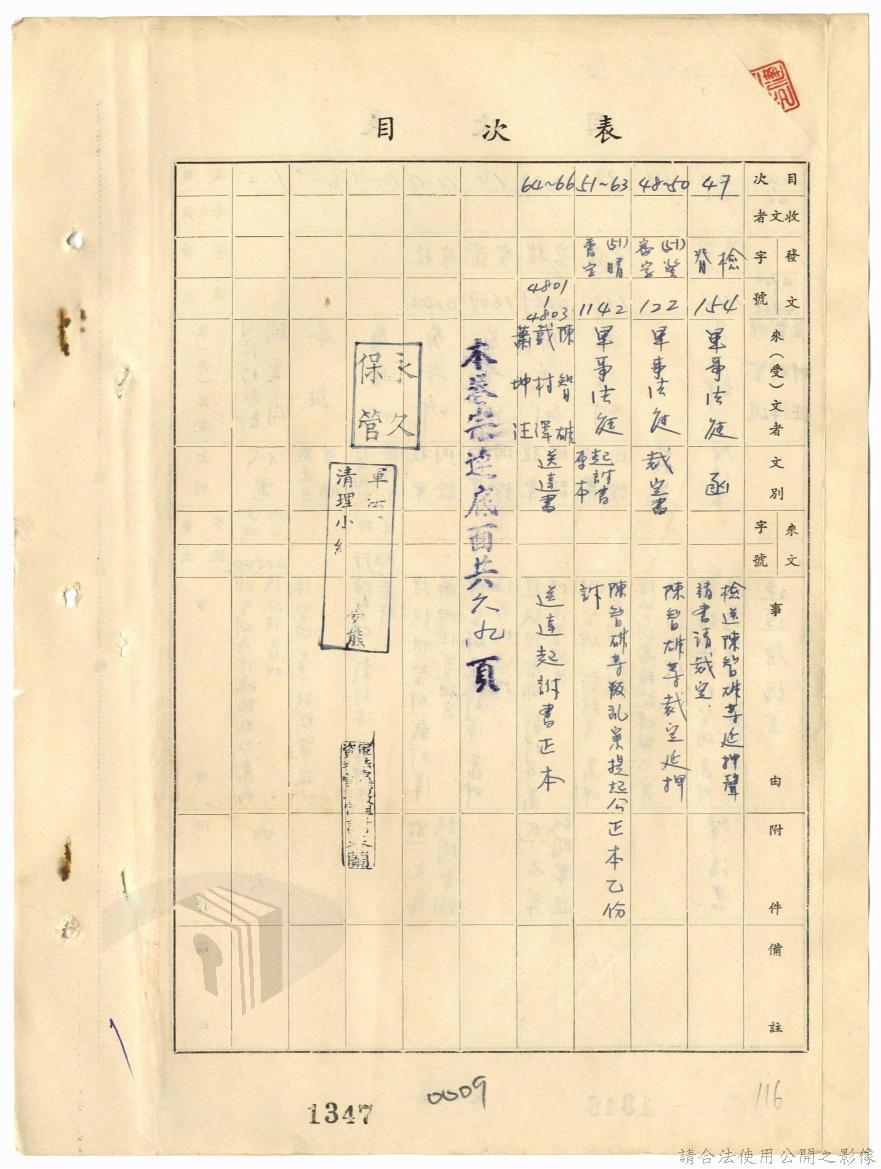 目次表
目次
收文者
發文字號
來(受)文者
文別
來文字號
事由
附件
備註
47
檢
154
軍事法庭
函
檢送陳智雄等延押聲
請書請裁定
48~50
(51)
122
軍事法庭
裁定書
陳智雄等裁定延押
51~63
(51)晴
普字
1142
軍事法庭
起訴書
原本
陳智雄等叛乱案提起公
訴
正本乙份
64~66
4801
4803
陳智雄
戴村澤
蕭坤旺
送達書
送達起訴書正本
本卷宗連底面共六九頁
永久
保管
軍法
清理小組
1347
0009
116
請合法使用公開之影像